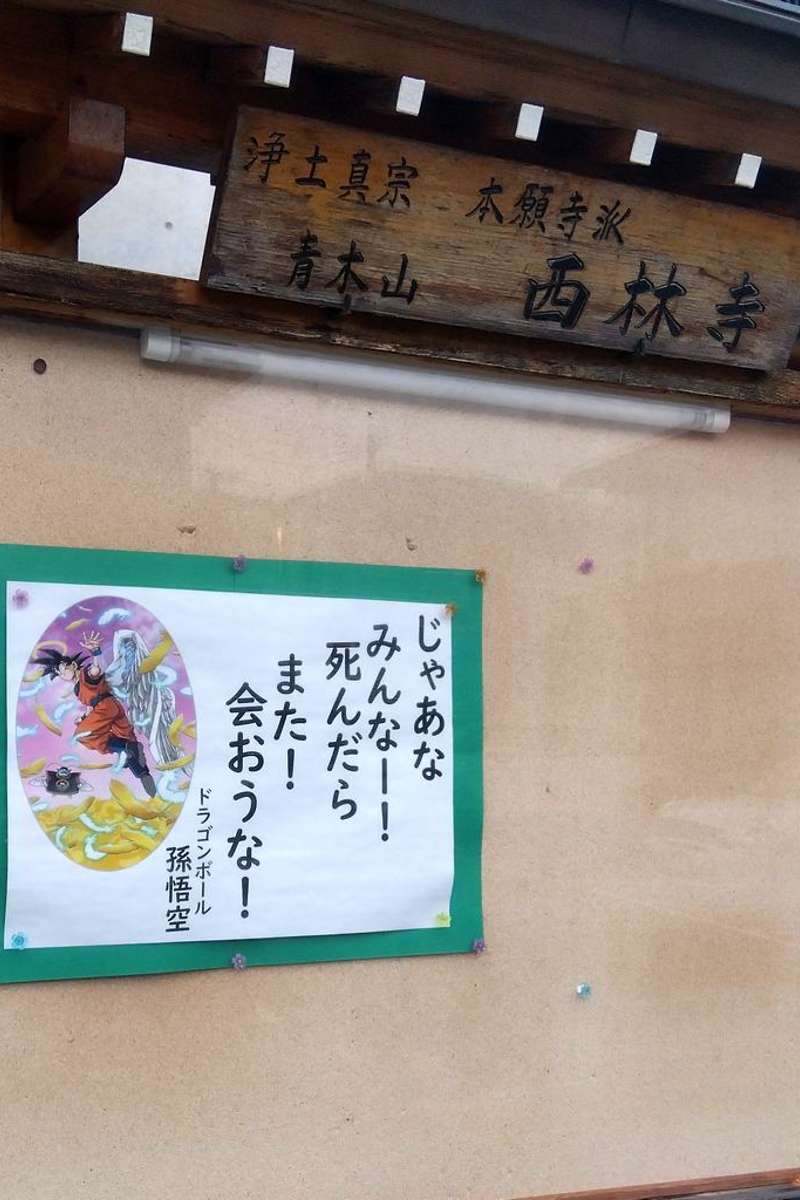 浄土真宗 本願寺派
青木山 西林寺
じゃあな
みんなー!
死んだら
また!
会おうな!
ドラゴンボール
孫悟空